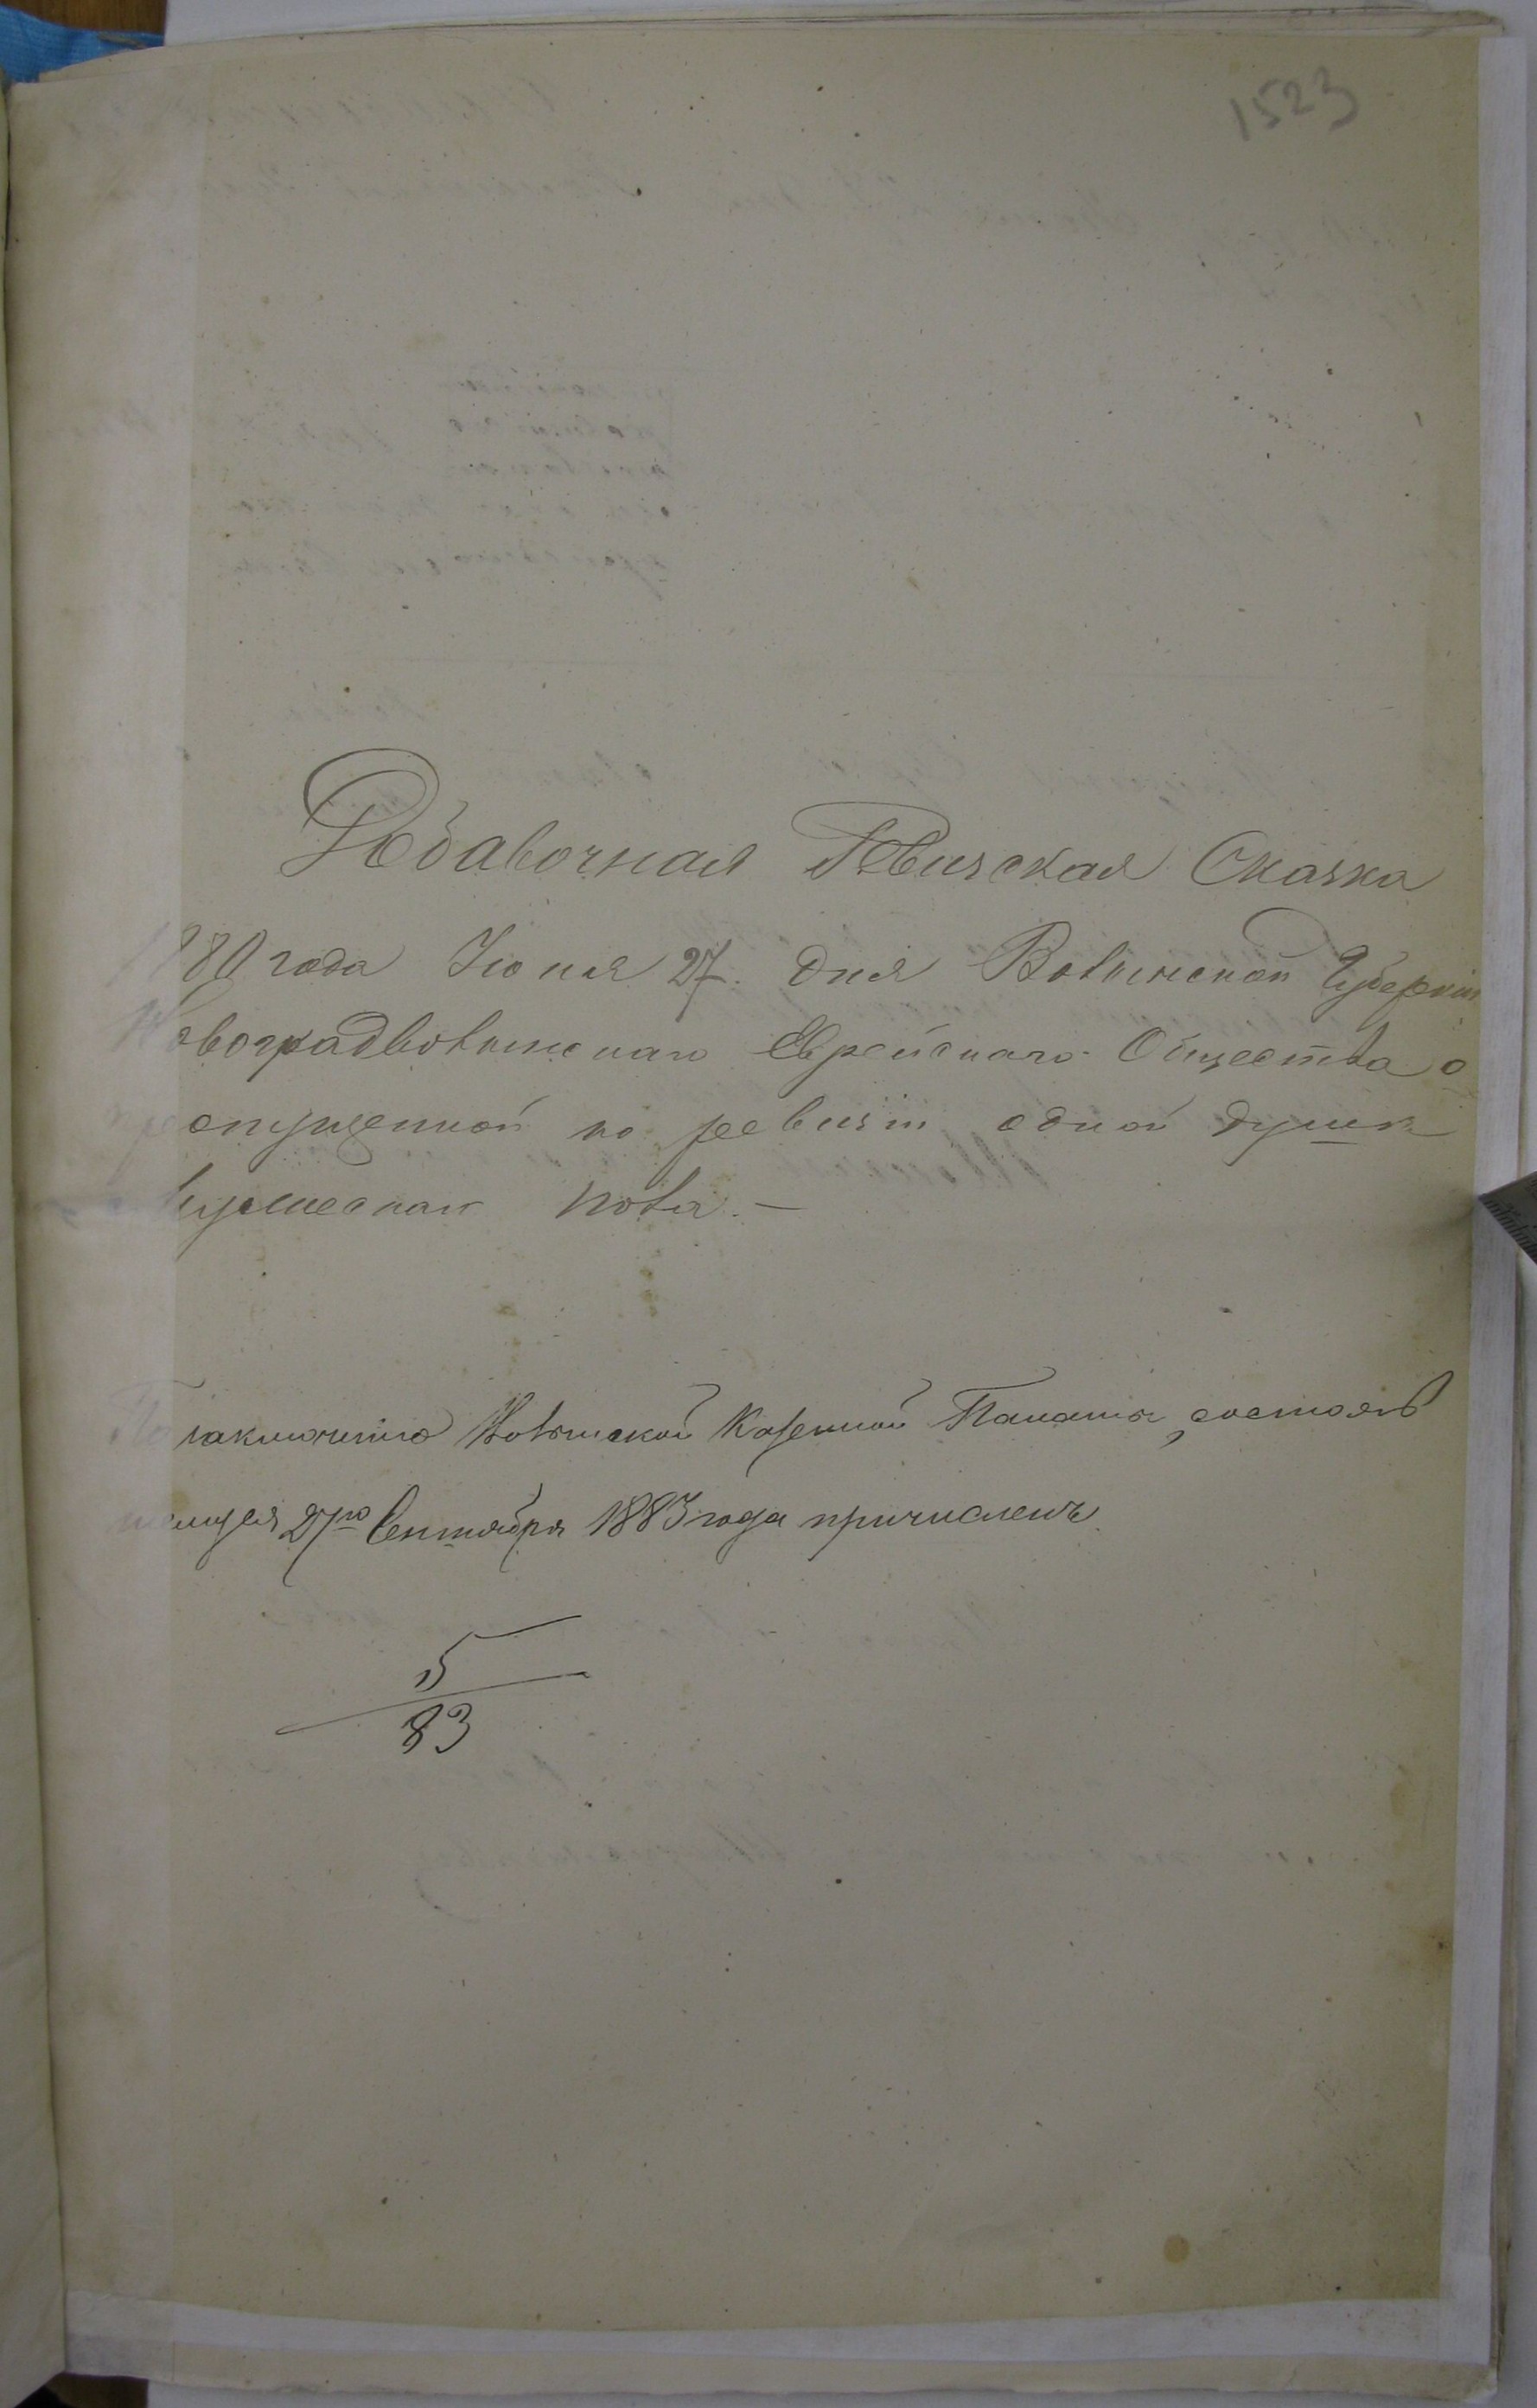 1523
Добавочная Ревизская Сказка
1880 года Июня 27. дня Волынской Губерніи
Новоградволынскаго Еврейскаго Общества о
пропущенной по ревизіи одной души
мужескаго пола. —
По заключенію Волынской Казенной Палаты, состояв
шемуся 27го Сентября 1883 года причисленъ
5
83